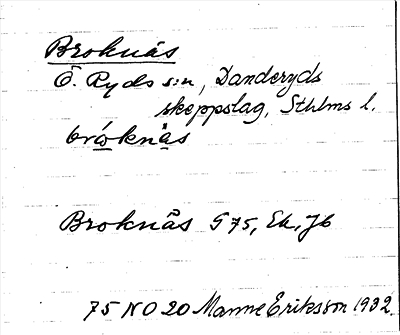 Broknäs
Ö. Ryds s:n, Danderyds
skeppslag, Sthlms l.
bro̲knä̲s
Broknäs G 75, Ek, Jb
75 NO 20 Manne Eriksson 1932.